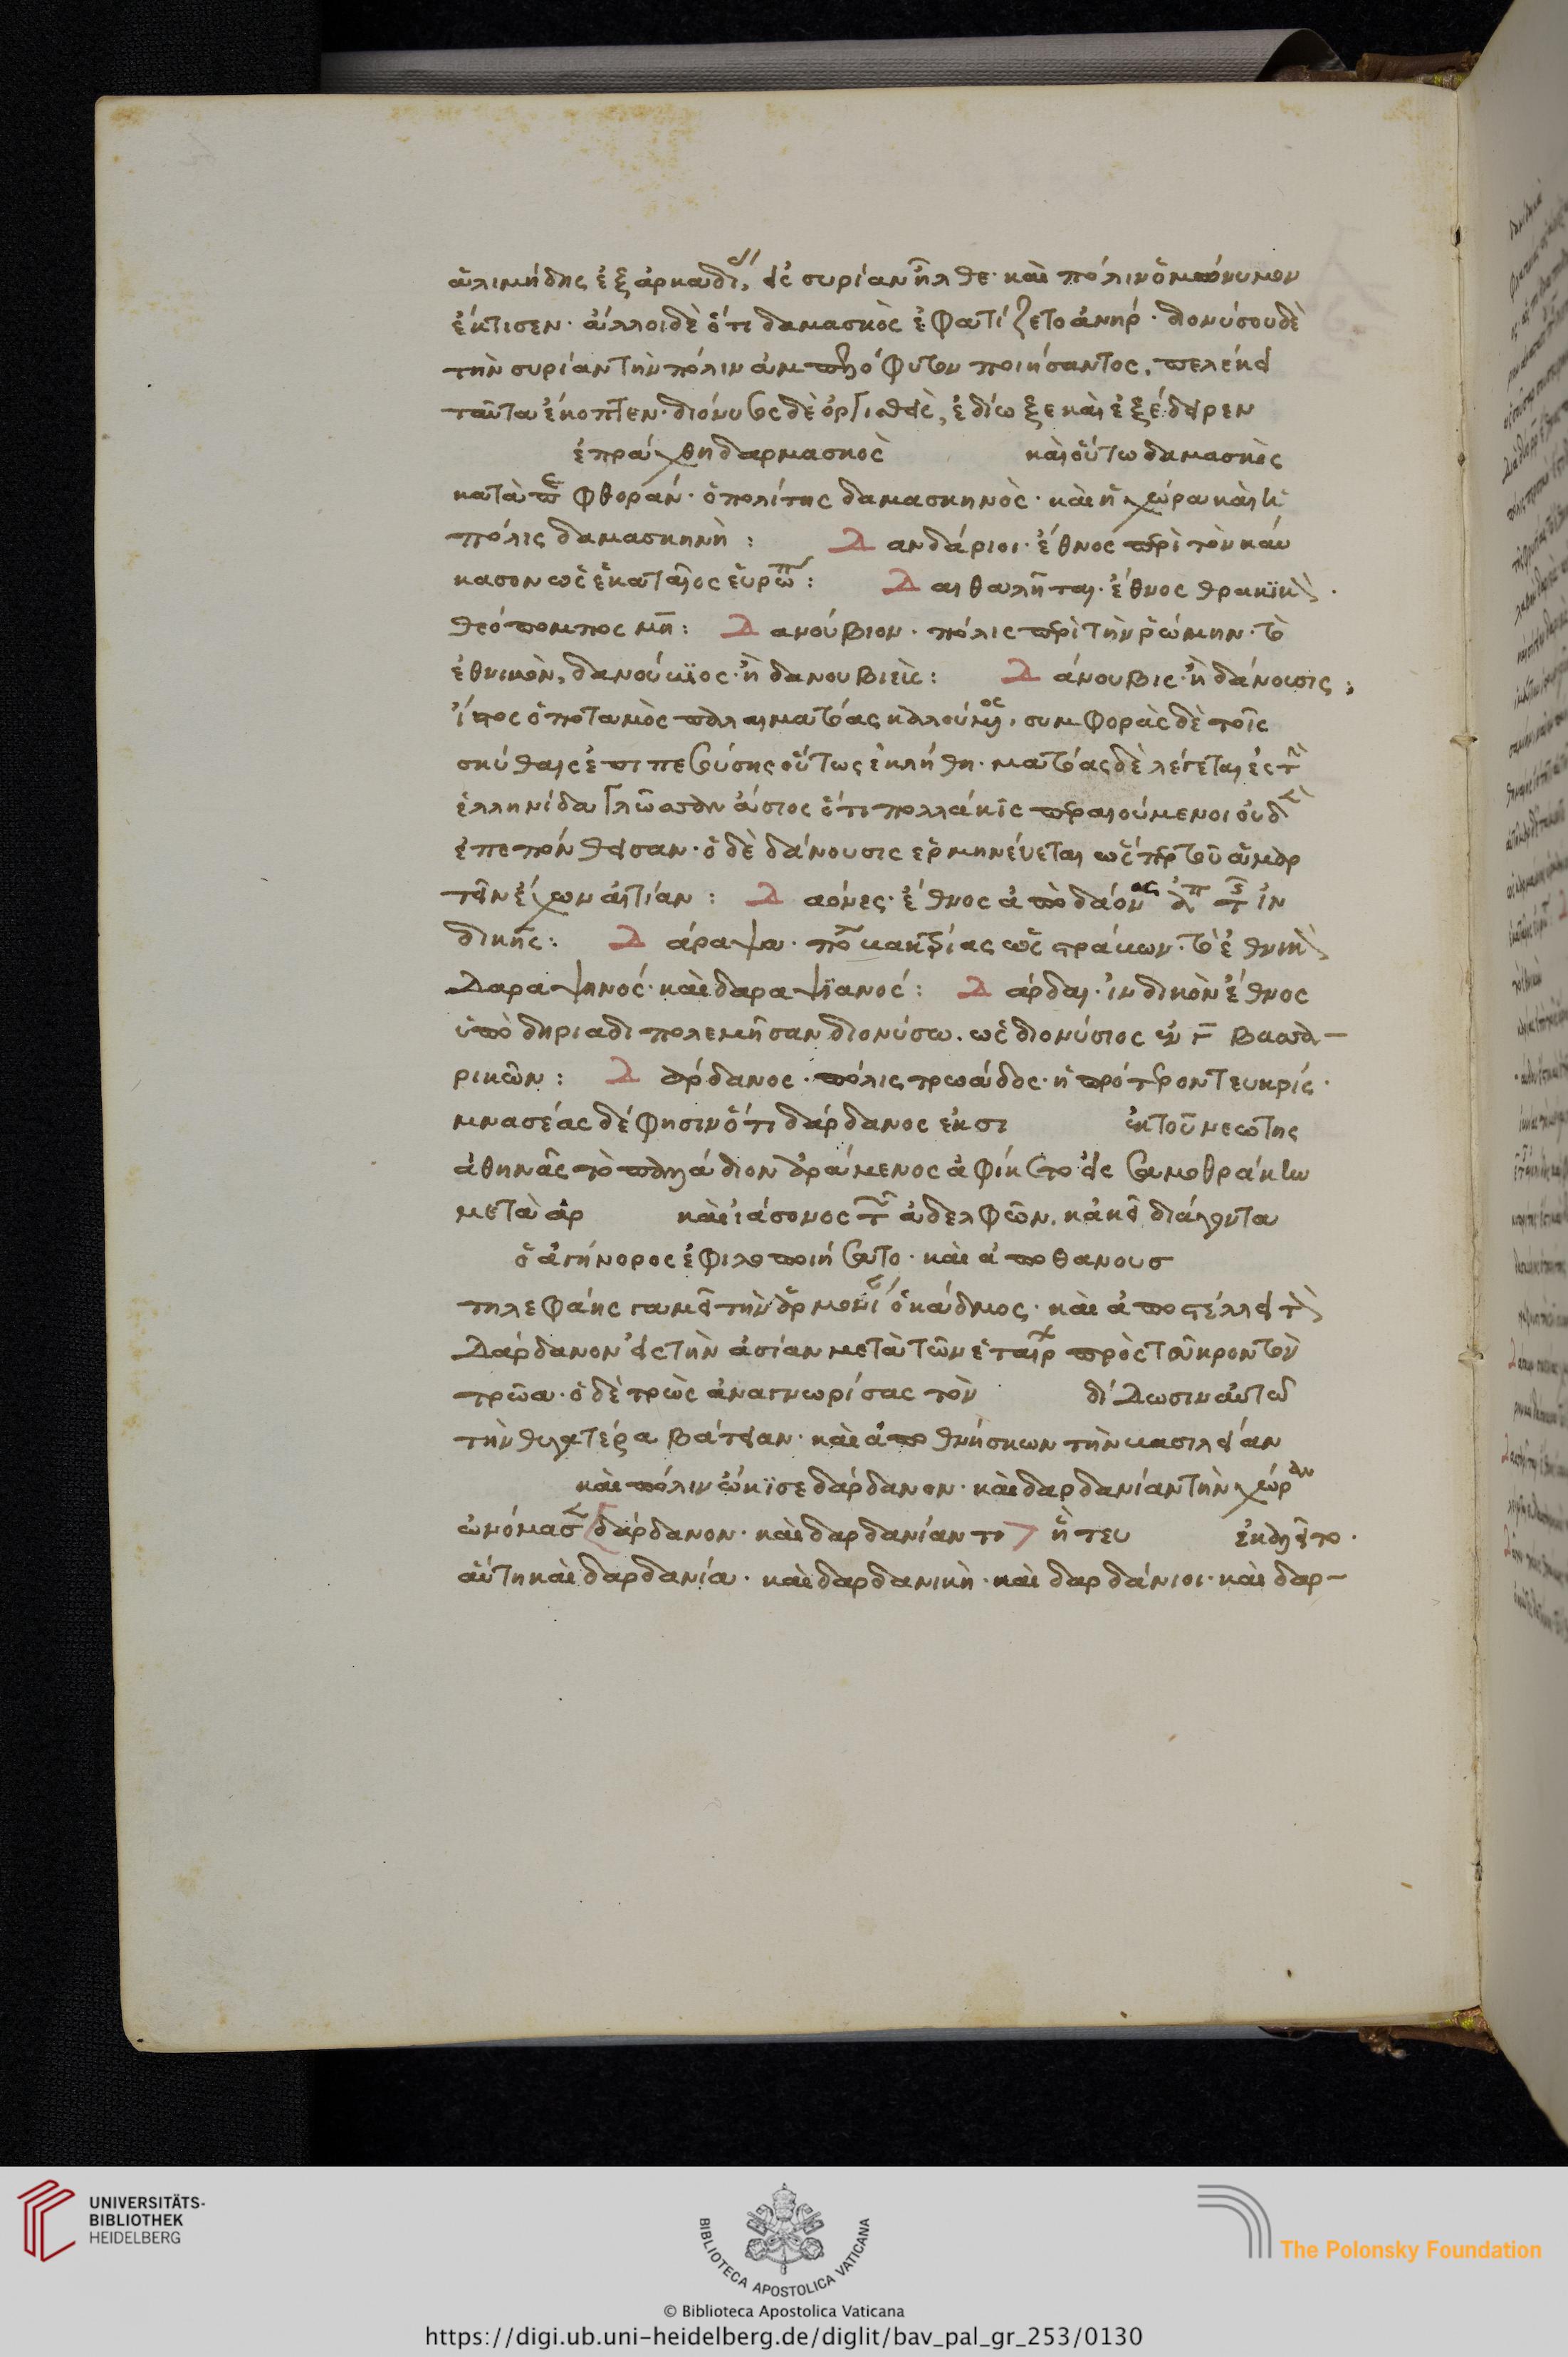 ἁλιμήδης ἐξ ἀρκαδίας εἰς συρίαν ἦλθε· καὶ πόλιν ὁμώνυμον
ἔκτισεν· ἄλλοι δὲ ὅτι δαμασκὸς ἐφατίζετο ἀνὴρ· διονύσου δὲ
τὴν συρίαν τὴν πόλιν ἀμπελόφυτον ποιήσαντος, πελέκει
ταῦτα ἔκοπτεν· διόνυσος δὲ ὀργισθεὶς, ἐδίωξε καὶ ἐξέδειρεν
ἐπράχθη δαρμασκὸς καὶ οὕτω δαμασκὸς
κατὰ φθοράν· ὁ πολίτης δαμασκηνὸς· καὶ ἡ χώρα καὶ ἡ
πόλις δαμασκηνὴ : Δανδάριοι· ἔθνος περὶ τὸν καύ
κασον ὡς ἑκαταῖος εὐρώπ : Δαιθαλῆται· ἔθνος θρακικὸν·
θεόπομπος μη : Δανούβιον· πόλις περὶ τὴν ῥώμην· τὸ
ἐθνικὸν, δανούκιος· ἢ δανουβιεὺς : Δάνουβις· ἢ δάνουσις,
ἴστρος ὁ ποταμὸς πάλαι ματόας καλούμενος, συμφορὰς δὲ τοῖς
σκύθαις ἐπιπεσούσης οὕτως ἐκλήθη· ματόας δὲ λέγεται εἰς τὴν
ἑλληνίδα γλῶσσαν ἄσιος ὅτι πολλάκις περαιούμενοι οὐδὲν
ἐπεπόνθεισαν· ὁ δὲ δάνουσις ἑρμηνεύεται ὥσπερ τοῦ ἁμαρ
τεῖν ἔχων αἰτίαν : Δαόνες· ἔθνος ἀπὸ δάονας τῆς ἰν
δικῆς : Δάραψα· πό βακτρίας ὡς στράβων· τὸ ἐθνικὸν
Δαραψηνός· καὶ δαραψιανός : Δάρδαι· ἰνδικὸν ἔθνος
ὑπὸ δηριάδι πολεμῆσαν διονύσω. ὡς διονύσιος ἐν γ βασσα-
ρικῶν : Δάρδανος· πόλις τρωάδος· ἡ πρότερον τευκρίς·
μνασέας δέ φησιν ὅτι δάρδανος ἐκ σι ἐκ τοῦ νεὼ τῆς
ἀθηνᾶς τὸ παλλάδιον ἀράμενος ἀφίκετο εἰς σαμοθράκην
μετὰ ἁρ καὶ ἰάσονος τῶν ἀδελφῶν. κἀκεῖ διάγοντα
ὁ ἀγήνορος ἐφιλοποιήσατο· καὶ ἀποθανουσ
τηλεφάης γαμεῖ τὴν ἁρμονίαν ὁ κάδμος· καὶ ἀποστέλλει τὸν
Δάρδανον εἰς τὴν ἀσίαν μετὰ τῶν ἑταίρων πρὸς τεῦκρον τὸν
τρῶα· ὁ δὲ τρὼς ἀναγνωρίσας τὸν δίδωσιν αὐτῶ
τὴν θυγατέρα βάτειαν· καὶ ἀποθνήσκων τὴν βασιλείαν
καὶ πόλιν ᾤκισε δάρδανον· καὶ δαρδανίαν τὴν χώραν
ὠνόμασεν δάρδανον· καὶ δαρδανίαν το ἣ τευ ἐκαλεῖτο·
αὕτη καὶ δαρδανία· καὶ δαρδανικὴ· καὶ δαρδάνιοι· καὶ δαρ-
UNIVERSITÄTS-
BIBLIOTHEK
HEIDELBERG
BIBLIOTECA APOSTOLICA VATICANA
The Polonsky Foundation
© Biblioteca Apostolica Vaticana
https://digi.ub.uni-heidelberg.de/diglit/bav_pal_gr_253/0130